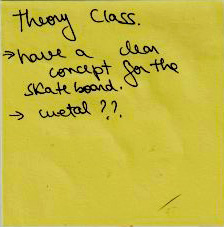 Theory Class.
→ have a clear
concept for the
skateboard.
→ metal ??